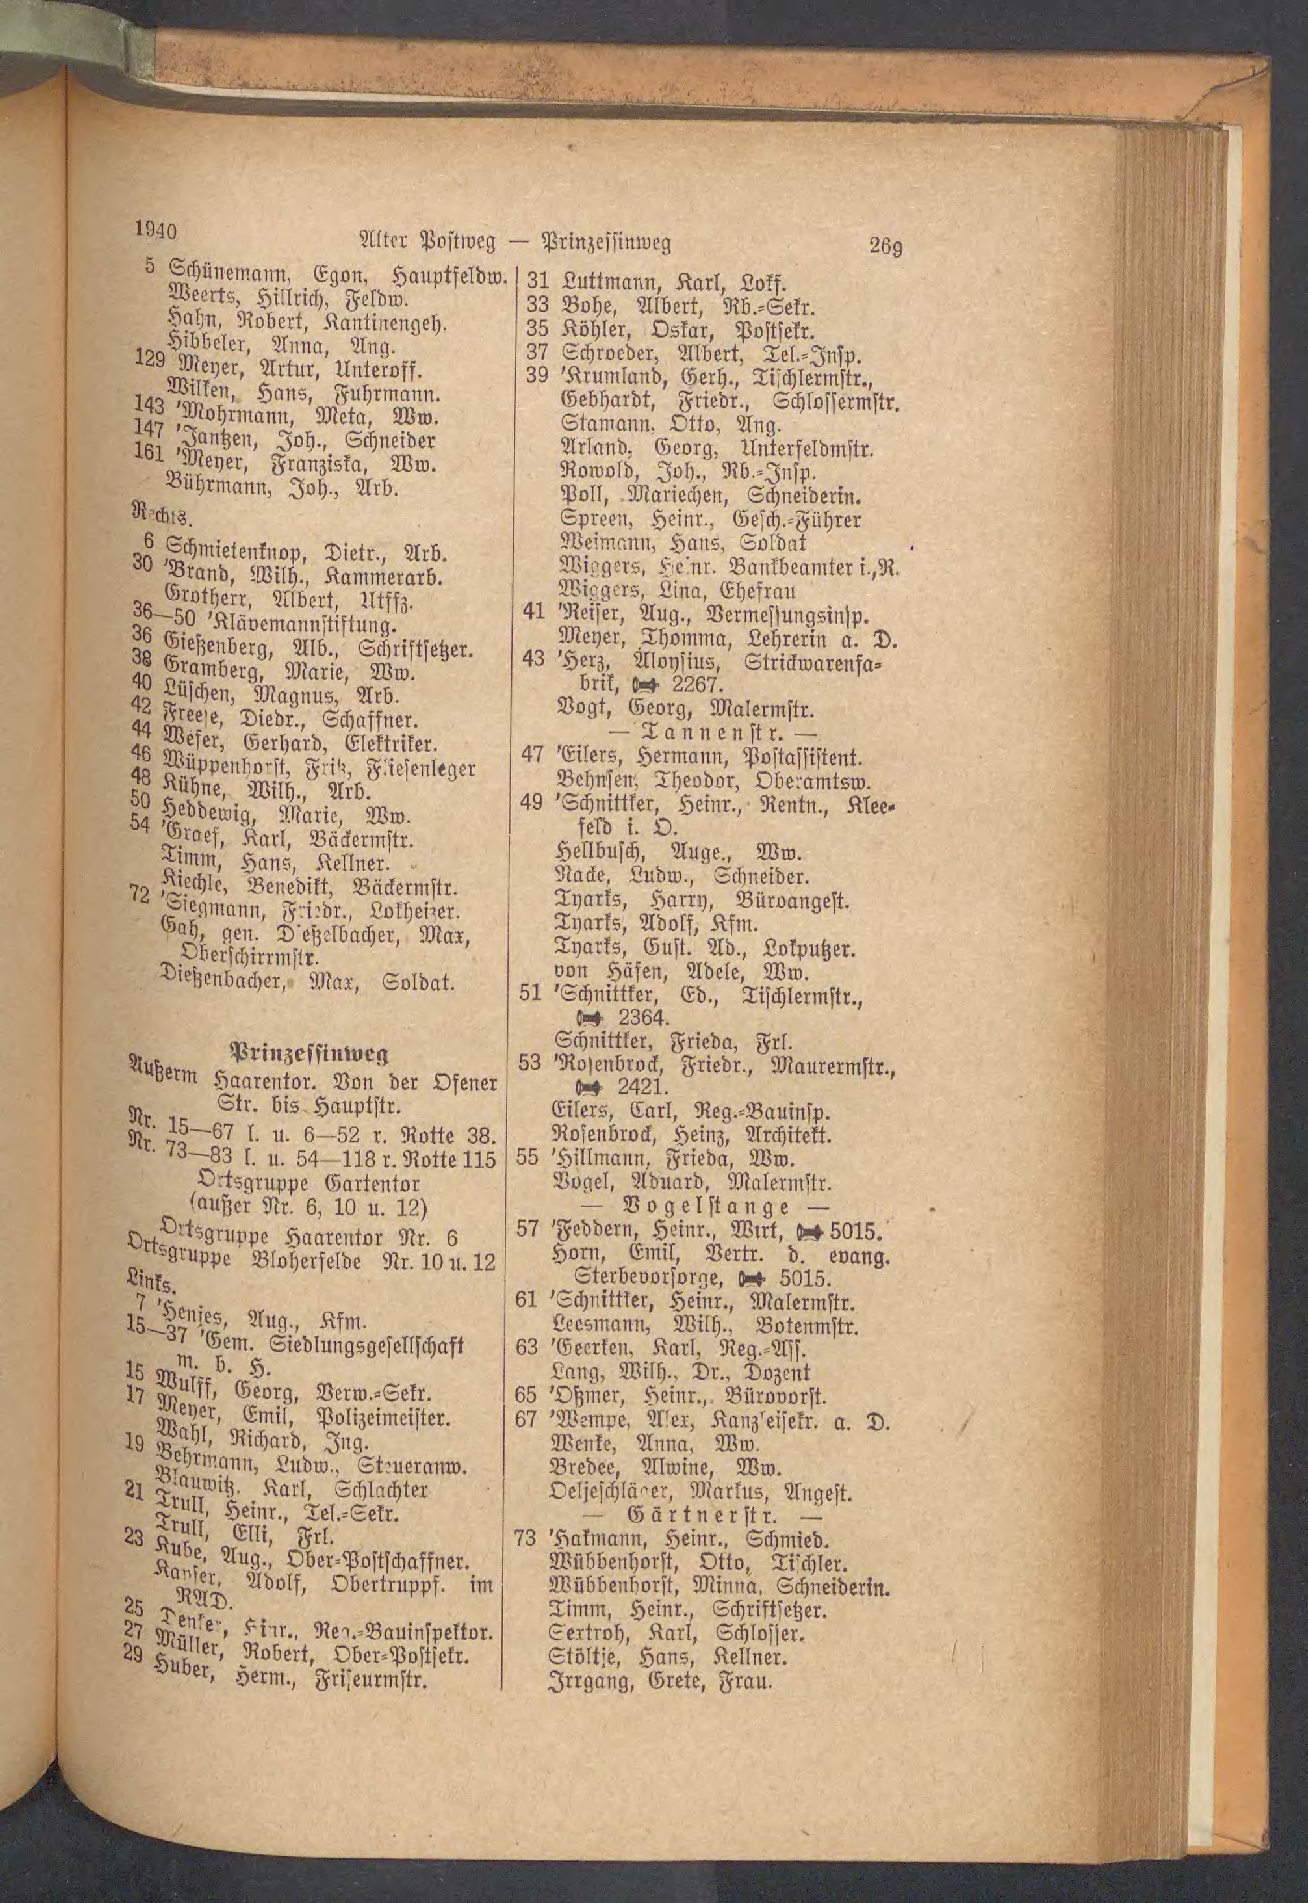 1940 Alter Postweg — Prinzessinweg 269
5 Schünemann, Egon, Hauptfeldw.
Weerts, Hillrich, Feldw.
Hahn, Robert, Kantinengeh.
Hibbeler, Anna, Ang.
129 Meyer, Artur, Unteroff.
Wilken, Hans, Fuhrmann.
143 'Mohrmann, Meta, Ww.
147 'Jantzen, Joh., Schneider
161 'Meyer, Franziska, Ww.
Bührmann, Joh., Arb.
Rechts.
6 Schmietenknop, Dietr., Arb.
30 'Brand, Wilh., Kammerarb.
Grotherr, Albert, Utffz.
36—50 'Klävemannstiftung.
36 Gießenberg, Alb., Schriftsetzer.
38 Gramberg, Marie, Ww.
40 Lüschen, Magnus, Arb.
42 Freese, Diedr., Schaffner.
44 Weser, Gerhard, Elektriker.
46 Wüppenhorst, Fritz, Fliesenleger
48 Kühne, Wilh., Arb.
50 Heddewig, Marie, Ww.
54 'Graef, Karl, Bäckermstr.
Timm, Hans, Kellner.
Kiechle, Benedikt, Bäckermstr.
72 'Siegmann, Friedr., Lokheizer.
Gah, gen. Dießelbacher, Max,
Oberschirrmstr.
Dießenbacher, Max, Soldat.
Prinzessinweg
Außerm Haarentor. Von der Ofener
Str. bis Hauptstr.
Nr. 15—67 l. u. 6—52 r. Rotte 38.
Nr. 73—83 l. u. 54—118 r. Rotte 115
Ortsgruppe Gartentor
(außer Nr. 6, 10 u. 12)
Ortsgruppe Haarentor Nr. 6
Ortsgruppe Bloherfelde Nr. 10 u. 12
Links.
7 'Henjes, Aug., Kfm.
15—37 'Gem. Siedlungsgesellschaft
m. b. H.
15 Wulff, Georg, Verw.-Sekr.
17 Meyer, Emil, Polizeimeister.
Wahl, Richard, Ing.
19 Behrmann, Ludw., Steueranw.
Blauwitz, Karl, Schlachter
21 Trull, Heinr., Tel.-Sekr.
Trull, Elli, Frl.
23 Kube, Aug., Ober-Postschaffner.
Kayser, Adolf, Obertruppf. im
RAD.
25 Denker, Hinr., Reg.-Bauinspektor.
27 Müller, Robert, Ober-Postsekr.
29 Huber, Herm., Friseurmstr.
31 Luttmann, Karl, Lokf.
33 Bohe, Albert, Rb.-Sekr.
35 Köhler, Oskar, Postsekr.
37 Schroeder, Albert, Tel.-Insp.
39 'Krumland, Gerh., Tischlermstr.,
Gebhardt, Friedr., Schlossermstr.
Stamann, Otto, Ang.
Arland, Georg, Unterfeldmstr.
Rowold, Joh., Rb.-Insp.
Poll, Mariechen, Schneiderin.
Spreen, Heinr., Gesch.-Führer
Weimann, Hans, Soldat
Wiggers, Heinr. Bankbeamter i., R.
Wiggers, Lina, Ehefrau
41 'Reiser, Aug., Vermessungsinsp.
Meyer, Thomma, Lehrerin a. D.
43 'Herz, Aloysius, Strickwarenfa-
brik, 2267.
Vogt, Georg, Malermstr.
— Tannenstr. —
47 'Eilers, Hermann, Postassistent.
Behnsen, Theodor, Oberamtsw.
49 'Schnittker, Heinr., Rentn., Klee-
feld i. O.
Hellbusch, Auge., Ww.
Nacke, Ludw., Schneider.
Tyarks, Harry, Büroangest.
Tyarks, Adolf, Kfm.
Tyarks, Gust. Ad., Lokputzer.
von Häfen, Adele, Ww.
51 'Schnittker, Ed., Tischlermstr.,
2364.
Schnittker, Frieda, Frl.
53 'Rosenbrock, Friedr., Maurermstr.,
2421.
Eilers, Carl, Reg.-Bauinsp.
Rosenbrock, Heinz, Architekt.
55 'Hillmann, Frieda, Ww.
Vogel, Aduard, Malermstr.
— Vogelstange —
57 'Feddern, Heinr., Wirt, 5015.
Horn, Emil, Vertr. d. evang.
Sterbevorsorge, 5015.
61 'Schnittker, Heinr., Malermstr.
Leesmann, Wilh., Botenmstr.
63 'Geerken, Karl, Reg.-Ass.
Lang, Wilh., Dr., Dozent
65 'Oßmer, Heinr., Bürovorst.
67 'Wempe, Alex, Kanzleisekr. a. D.
Wenke, Anna, Ww.
Bredee, Alwine, Ww.
Oeljeschläger, Markus, Angest.
— Gärtnerstr. —
73 'Hakmann, Heinr., Schmied.
Wübbenhorst, Otto, Tischler.
Wübbenhorst, Minna, Schneiderin.
Timm, Heinr., Schriftsetzer.
Sextroh, Karl, Schlosser.
Stöltje, Hans, Kellner.
Irrgang, Grete, Frau.